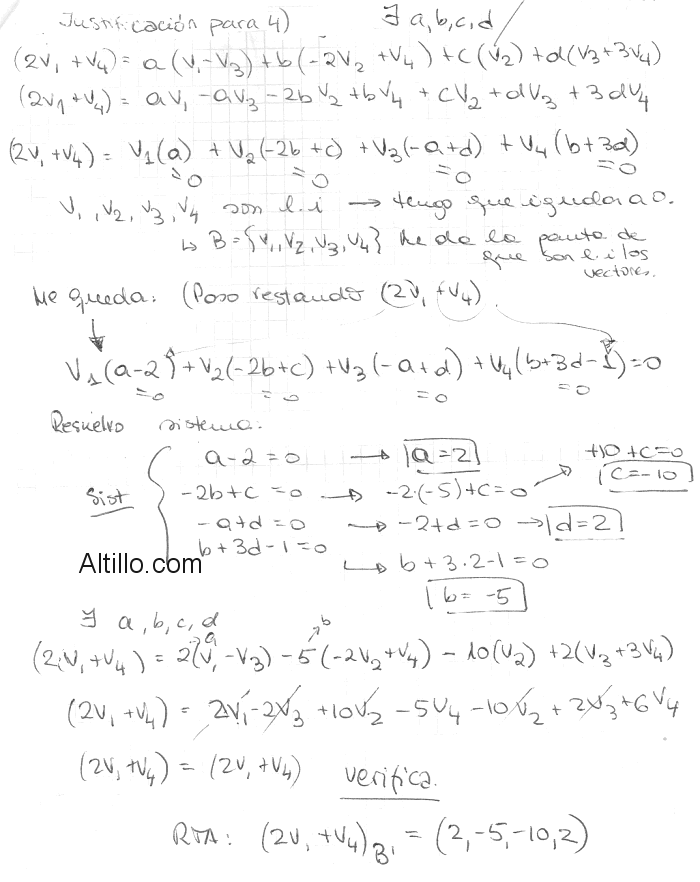 Justificación para 4) ∃ a,b,c,d
(2V₁ + V₄) = a(V₁-V₃) + b(-2V₂ + V₄) + c(V₂) + d(V₃+3V₄)
(2V₁ + V₄) = aV₁ - aV₃ - 2bV₂ + bV₄ + cV₂ + dV₃ + 3dV₄
(2V₁ + V₄) = V₁(a) + V₂(-2b+c) + V₃(-a+d) + V₄(b+3d)
=0 =0 =0 =0
V₁, V₂, V₃, V₄ son l.i → tengo que igualar a 0.
↳ B = {V₁, V₂, V₃, V₄} me da la pauta de
que son l.i los
vectores.
Me queda: (Paso restando (2V₁ + V₄)
V₁(a-2) + V₂(-2b+c) + V₃(-a+d) + V₄(b+3d-1) = 0
=0 =0 =0 =0
Resuelvo sistema:
a-2 = 0 → a=2
+10+c=0
Sist -2b+c = 0 → -2·(-5)+c=0 → c=-10
-a+d=0 → -2+d=0 → d=2
b+3d-1=0
↳ b+3·2-1=0
Altillo.com
b= -5
∃ a,b,c,d
a b
(2V₁+V₄) = 2(V₁-V₃) -5(-2V₂+V₄) - 10(V₂) + 2(V₃+3V₄)
(2V₁+V₄) = 2V₁-2V₃ +10V₂ -5V₄ -10V₂ + 2V₃+6V₄
(2V₁+V₄) = (2V₁+V₄) verifica.
RTA: (2V₁+V₄)B' = (2,-5,-10,2)